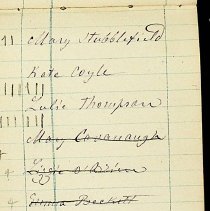 11 Mary Stubblefield
Kate Coyle
Lulie Thompson
May Cavanaugh
4 Lizzie O'Brien
4 Emma Beckett